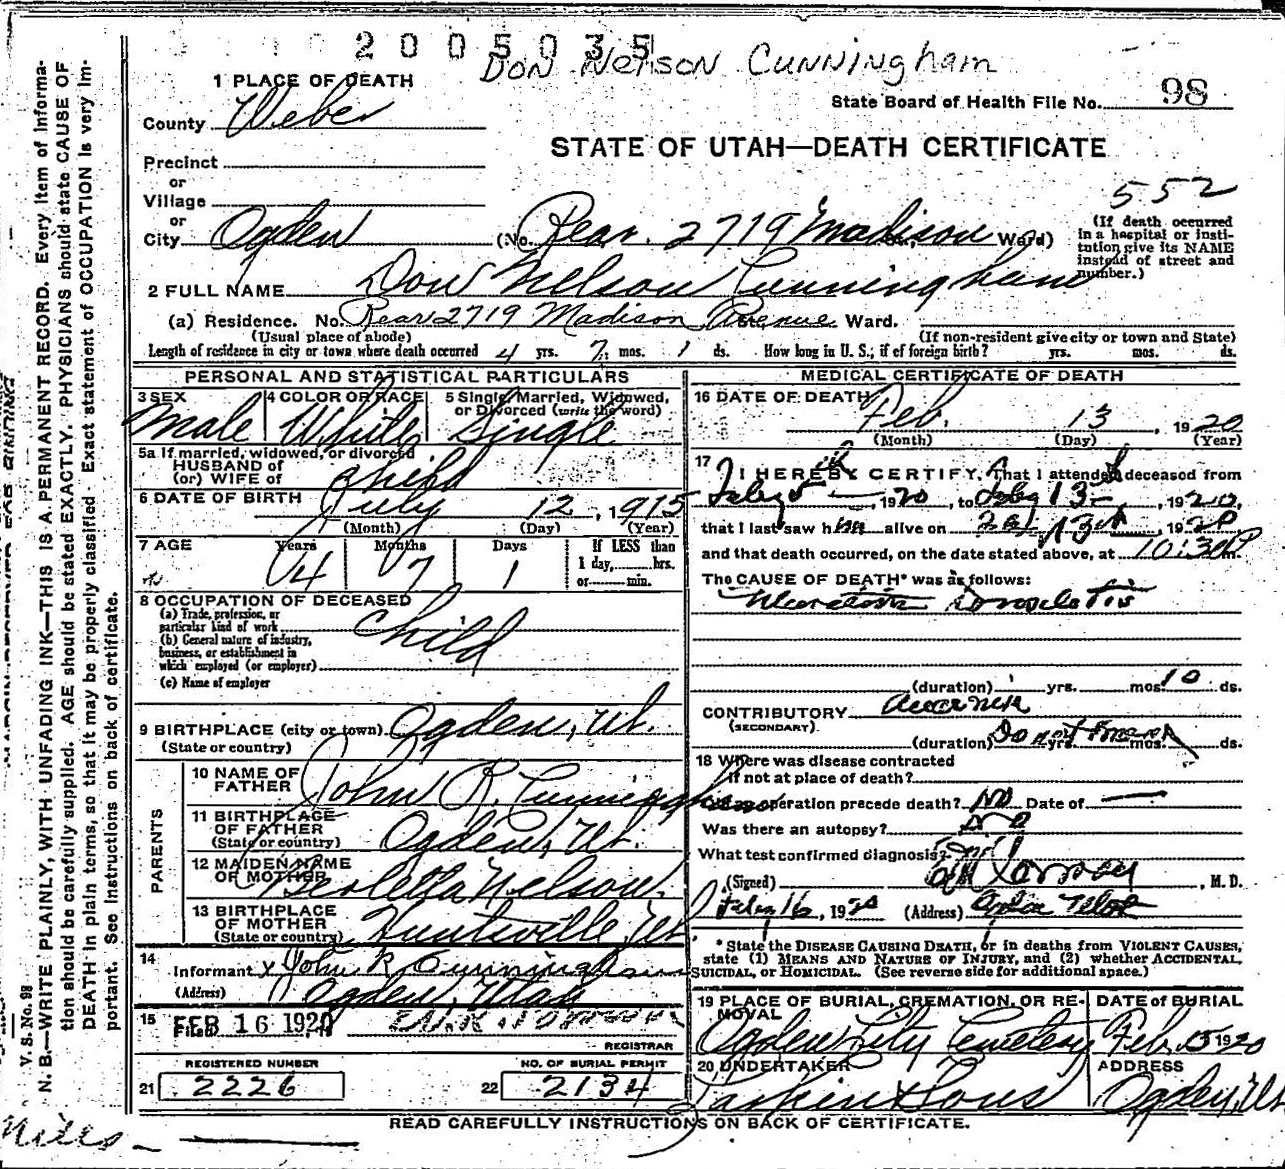 2005035
Don Nelson Cunningham
1 PLACE OF DEATH
County Weber
State Board of Health File No. 98
STATE OF UTAH—DEATH CERTIFICATE
Precinct
or
Village
or
552
City Ogden (No. Rear. 2719 Madison Ward)
(If death occurred in a hospital or institution give its NAME instead of street and number.)
2 FULL NAME Don Nelson Cunningham
(a) Residence. No. Rear 2719 Madison Avenue Ward.
(Usual place of abode) (If non-resident give city or town and State)
Length of residence in city or town where death occurred 4 yrs. 7 mos. 1 ds. How long in U. S., if of foreign birth? yrs. mos. ds.
PERSONAL AND STATISTICAL PARTICULARS
3 SEX 4 COLOR OR RACE 5 Single, Married, Widowed, or Divorced (write the word)
Male White Single
5a If married, widowed, or divorced
HUSBAND of
(or) WIFE of Child
6 DATE OF BIRTH July 12, 1915
(Month) (Day) (Year)
7 AGE Years Months Days If LESS than
4 7 1 1 day, hrs.
or min.
8 OCCUPATION OF DECEASED
(a) Trade, profession, or particular kind of work Child
(b) General nature of industry, business, or establishment in which employed (or employer)
(c) Name of employer
9 BIRTHPLACE (city or town) Ogden, Ut.
(State or country)
PARENTS
10 NAME OF FATHER John R. Cunningham
11 BIRTHPLACE OF FATHER Ogden, Ut.
(State or country)
12 MAIDEN NAME OF MOTHER Nelson.
13 BIRTHPLACE OF MOTHER Huntsville, Ut.
(State or country)
14 Informant x John R Cunningham
(Address) Ogden, Utah
15 FILED FEB 16 1920
REGISTRAR
REGISTERED NUMBER NO. OF BURIAL PERMIT
21 2226 22 2134
MEDICAL CERTIFICATE OF DEATH
16 DATE OF DEATH Feb. 13, 1920
(Month) (Day) (Year)
17 I HEREBY CERTIFY, That I attended deceased from
1920, to 13, 1920,
that I last saw him alive on 13th, 1920
and that death occurred, on the date stated above, at 10:30 P m.
The CAUSE OF DEATH* was as follows:
(duration) yrs. mos. 10 ds.
CONTRIBUTORY
(SECONDARY)
(duration) Do not know yrs. mos. ds.
18 Where was disease contracted
if not at place of death?
Did an operation precede death? No Date of —
Was there an autopsy? No
What test confirmed diagnosis?
(Signed) , M. D.
16, 1920 (Address) Ogden Utah
* State the DISEASE CAUSING DEATH, or in deaths from VIOLENT CAUSES,
state (1) MEANS AND NATURE OF INJURY, and (2) whether ACCIDENTAL,
SUICIDAL, or HOMICIDAL. (See reverse side for additional space.)
19 PLACE OF BURIAL, CREMATION, OR REMOVAL DATE of BURIAL
Ogden City Cemetery Feb. 15 1920
20 UNDERTAKER ADDRESS
Larkin & Sons Ogden, Ut.
READ CAREFULLY INSTRUCTIONS ON BACK OF CERTIFICATE.
V. S. No. 98
N. B.—WRITE PLAINLY, WITH UNFADING INK—THIS IS A PERMANENT RECORD. Every item of Informa-
tion should be carefully supplied. AGE should be stated EXACTLY. PHYSICIANS should state CAUSE OF
DEATH in plain terms, so that it may be properly classified. Exact statement of OCCUPATION is very im-
portant. See Instructions on back of certificate.